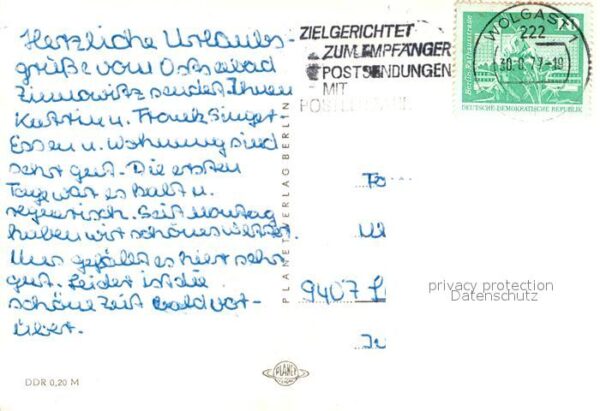 Herzliche Urlaubs-
grüße vom Ostseebad
Zinnowitz sendet Ihnen
Kathrin u. Frank Singer
Essen u. Wohnung sind
sehr gut. Die ersten
Tage war es kalt u.
regnerisch. Seit Montag
haben wir schönes Wetter.
Uns gefällt es hier sehr
gut. Leider ist die
schöne Zeit bald vor-
über.
DDR 0,20 M
PLANET-VERLAG BERLIN
PLANET
ZIELGERICHTET
ZUM EMPFÄNGER
POSTSENDUNGEN
MIT
WOLGAST 1
222
77-19
10
Berlin, Rathausstraße
DEUTSCHE DEMOKRATISCHE REPUBLIK
9407
privacy protection
Datenschutz